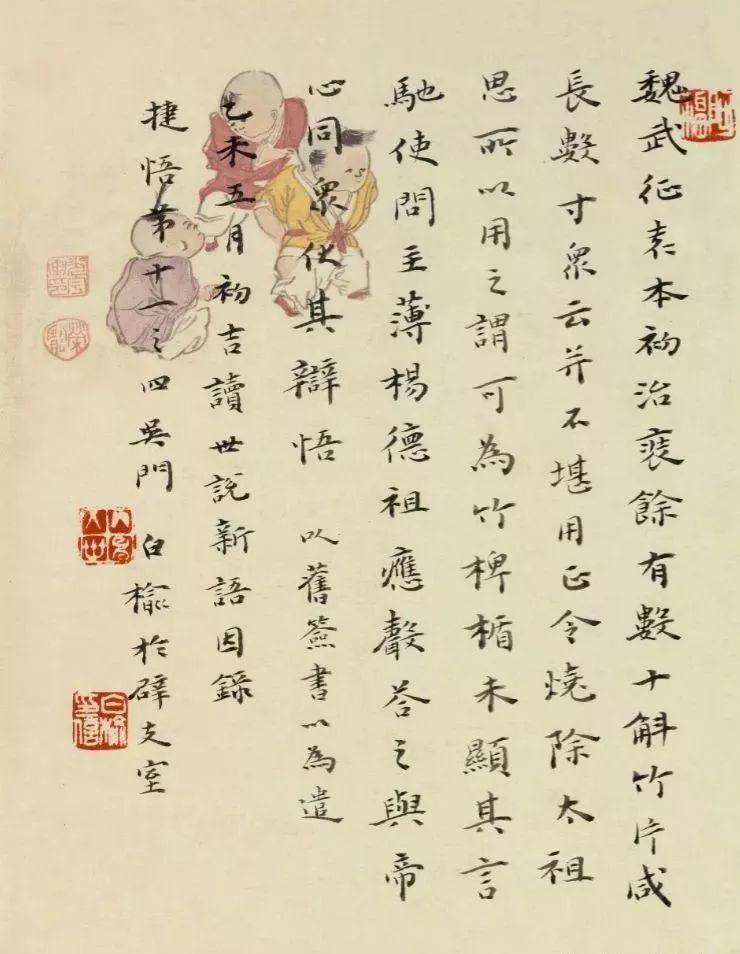 魏武征袁本初治裝餘有數十斛竹片咸
長數寸衆云并不堪用正令燒除太祖
思所以用之謂可為竹椑楯未顯其言
馳使問主薄楊德祖應聲荅之與帝
心同衆伏其辯悟 以舊簽書以為遣
乙未五月初吉讀世說新語因錄
捷悟第十一之四吳門 白榆於礔支室